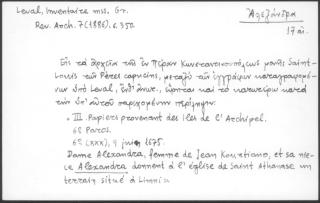 Leval, Inventaire mss. Gr.
Rev. Arch. 7 (1886), σ. 350.
Ἀλεξάνδρα
17 αἰ.
Εἰς τὰ ἀρχεῖα τῆς ἐν Πέραν Κωνσταντινουπόλεως μονῆς Saint-
Louis τῶν Pères capucins, μεταξὺ τῶν ἐγγράφων καταγραφομέ-
νων ὑπὸ Leval, σώζεται καὶ τὸ κατωτέρω κατὰ
τὴν ὑπ' αὐτοῦ παρεχομένην περίληψιν:
" III. Papiers provenant des Iles de l'Archipel.
6º Paros.
6º (XXX), 9 juin 1675.
Dame Alexandra, femme de Jean Kouktiano, et sa niè-
ce Alexandra donnent à l'église de Saint Athanase un
terrain situé à Limnia